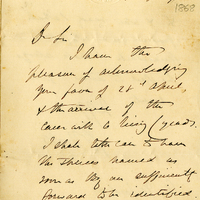 1868
D Sir
I have the
pleasure of acknowledging
your favor of 28th April,
& the arrival of the
case with 10 living Cycads.
I shall take care to have
the species named as
soon as they are sufficiently
forward to be identified.